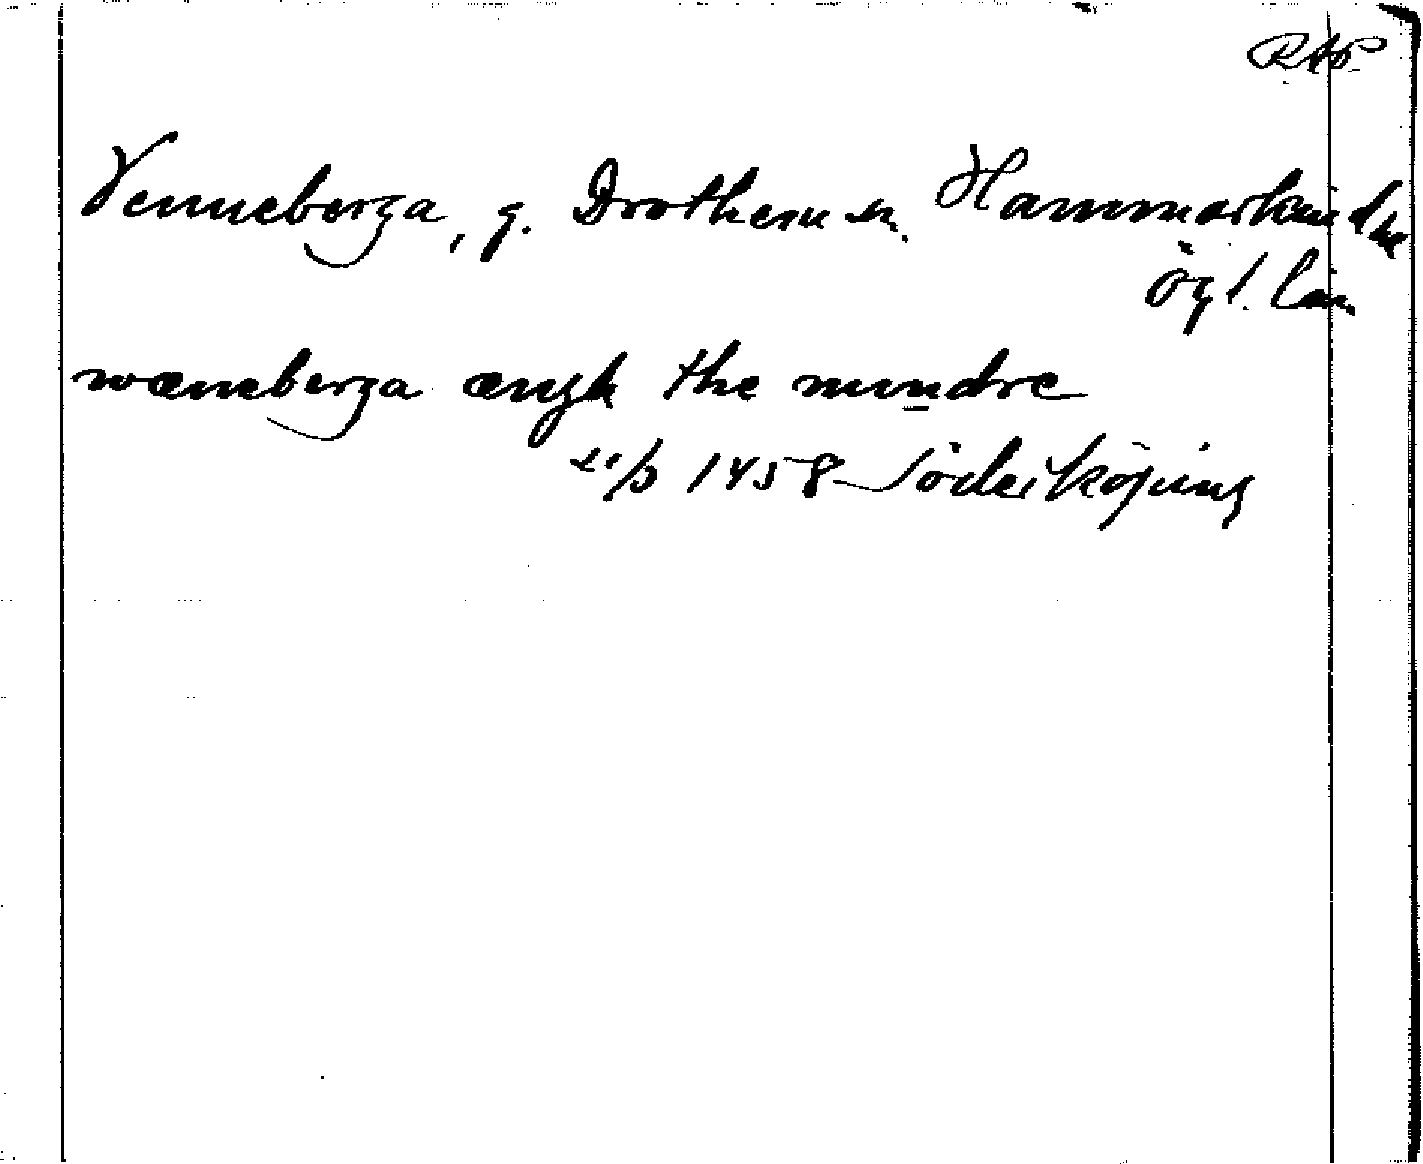 RAP
Venneberga, g. Drothem sn. Hammarkinds hd
Ögl. län
wæneberga ængh the mindre
21/3 1458 Söderköping